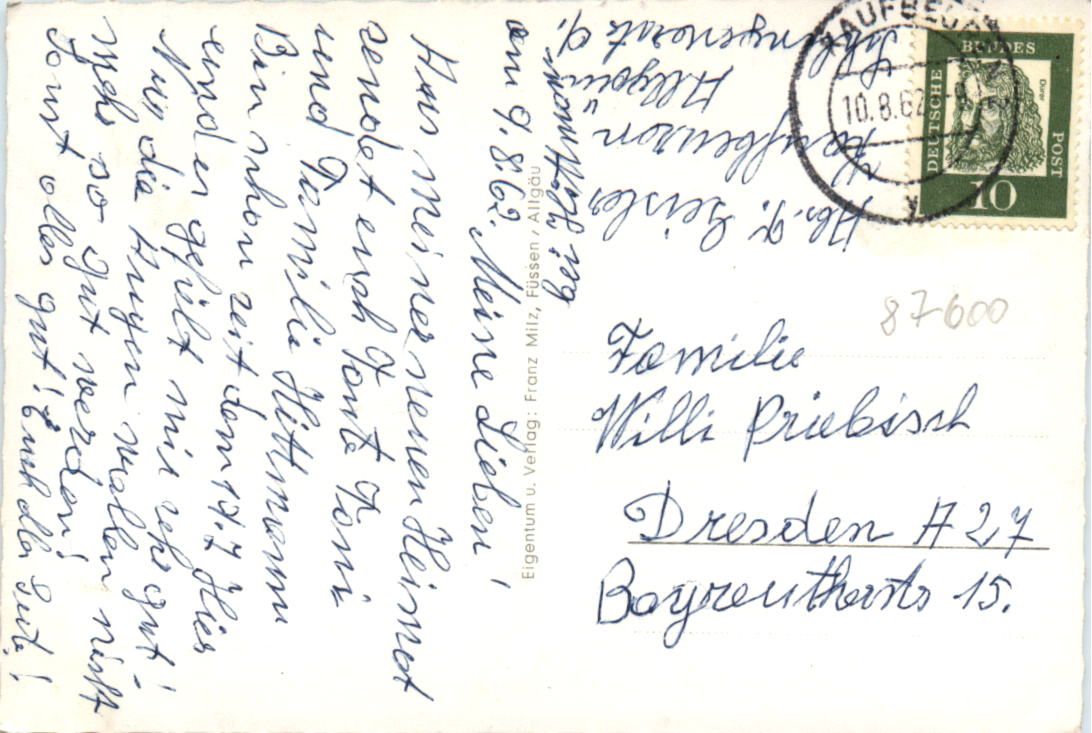 am 9.8.62. Meine Lieben!
Aus meiner neuen Heimat
sendet euch Tante Toni
und Familie Hüttmann
Bin schon seit dem 17.7. Hier
und es gefält mir sehr gut!
Nur die Augen wollen nicht
mehr so gut werden!
Sonst alles gut! Euch alles Gute!
Eigentum u. Verlag: Franz Milz, Füssen / Allgäu
Abs. Geisler
Kaufbeuren
Allgäu
bei Hüttmann
KAUFBEUREN
10.8.62
DEUTSCHE
BUNDES
POST
Dürer
10
87-600
Familie
Willi Priebisch
Dresden A 27
Bayreutherstr 15.